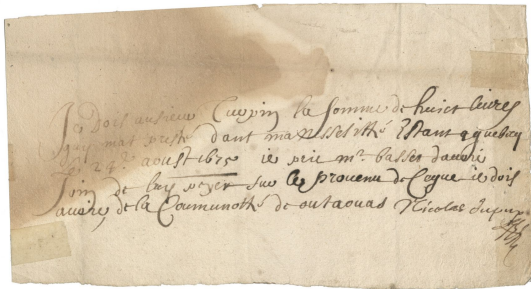 Je dois au sieur Crespin la somme de huict livres
quy mat preste dant ma nessesitté Estant a quebecq
le 24e aoust 1675 ie prie mr basset davoir
soin de luy peyer sur le prouenu de ce que ie dois
auoire de la Comunotté de outaouas Nicolas dupuy